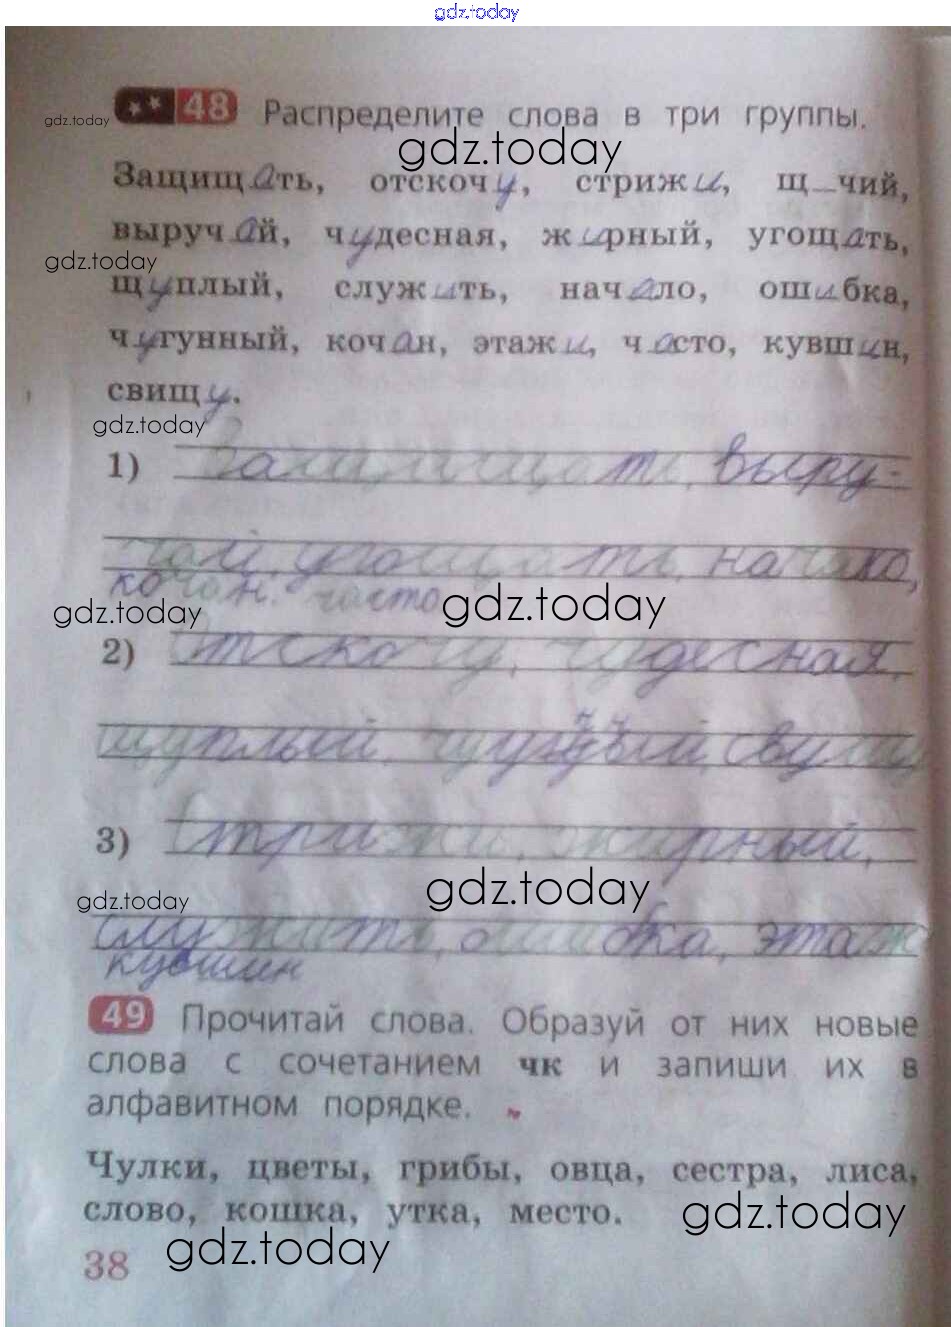 gdz.today
48 Распределите слова в три группы.
gdz.today
gdz.today
Защищать, отскочу, стрижи, щ_чий,
выручай, чудесная, жирный, угощать,
gdz.today
щуплый, служить, начало, ошибка,
чугунный, кочан, этажи, часто, кувшин,
свищу.
gdz.today
1) выру-
чай, угощать, начало,
кочан. часто
gdz.today
gdz.today
2) Отскочу, чудесная,
щуплый,
3) Стрижи, жирный,
gdz.today
gdz.today
служить, ошибка, этаж
кувшин
49 Прочитай слова. Образуй от них новые
слова с сочетанием чк и запиши их в
алфавитном порядке.
Чулки, цветы, грибы, овца, сестра, лиса,
слово, кошка, утка, место.
gdz.today
gdz.today
38